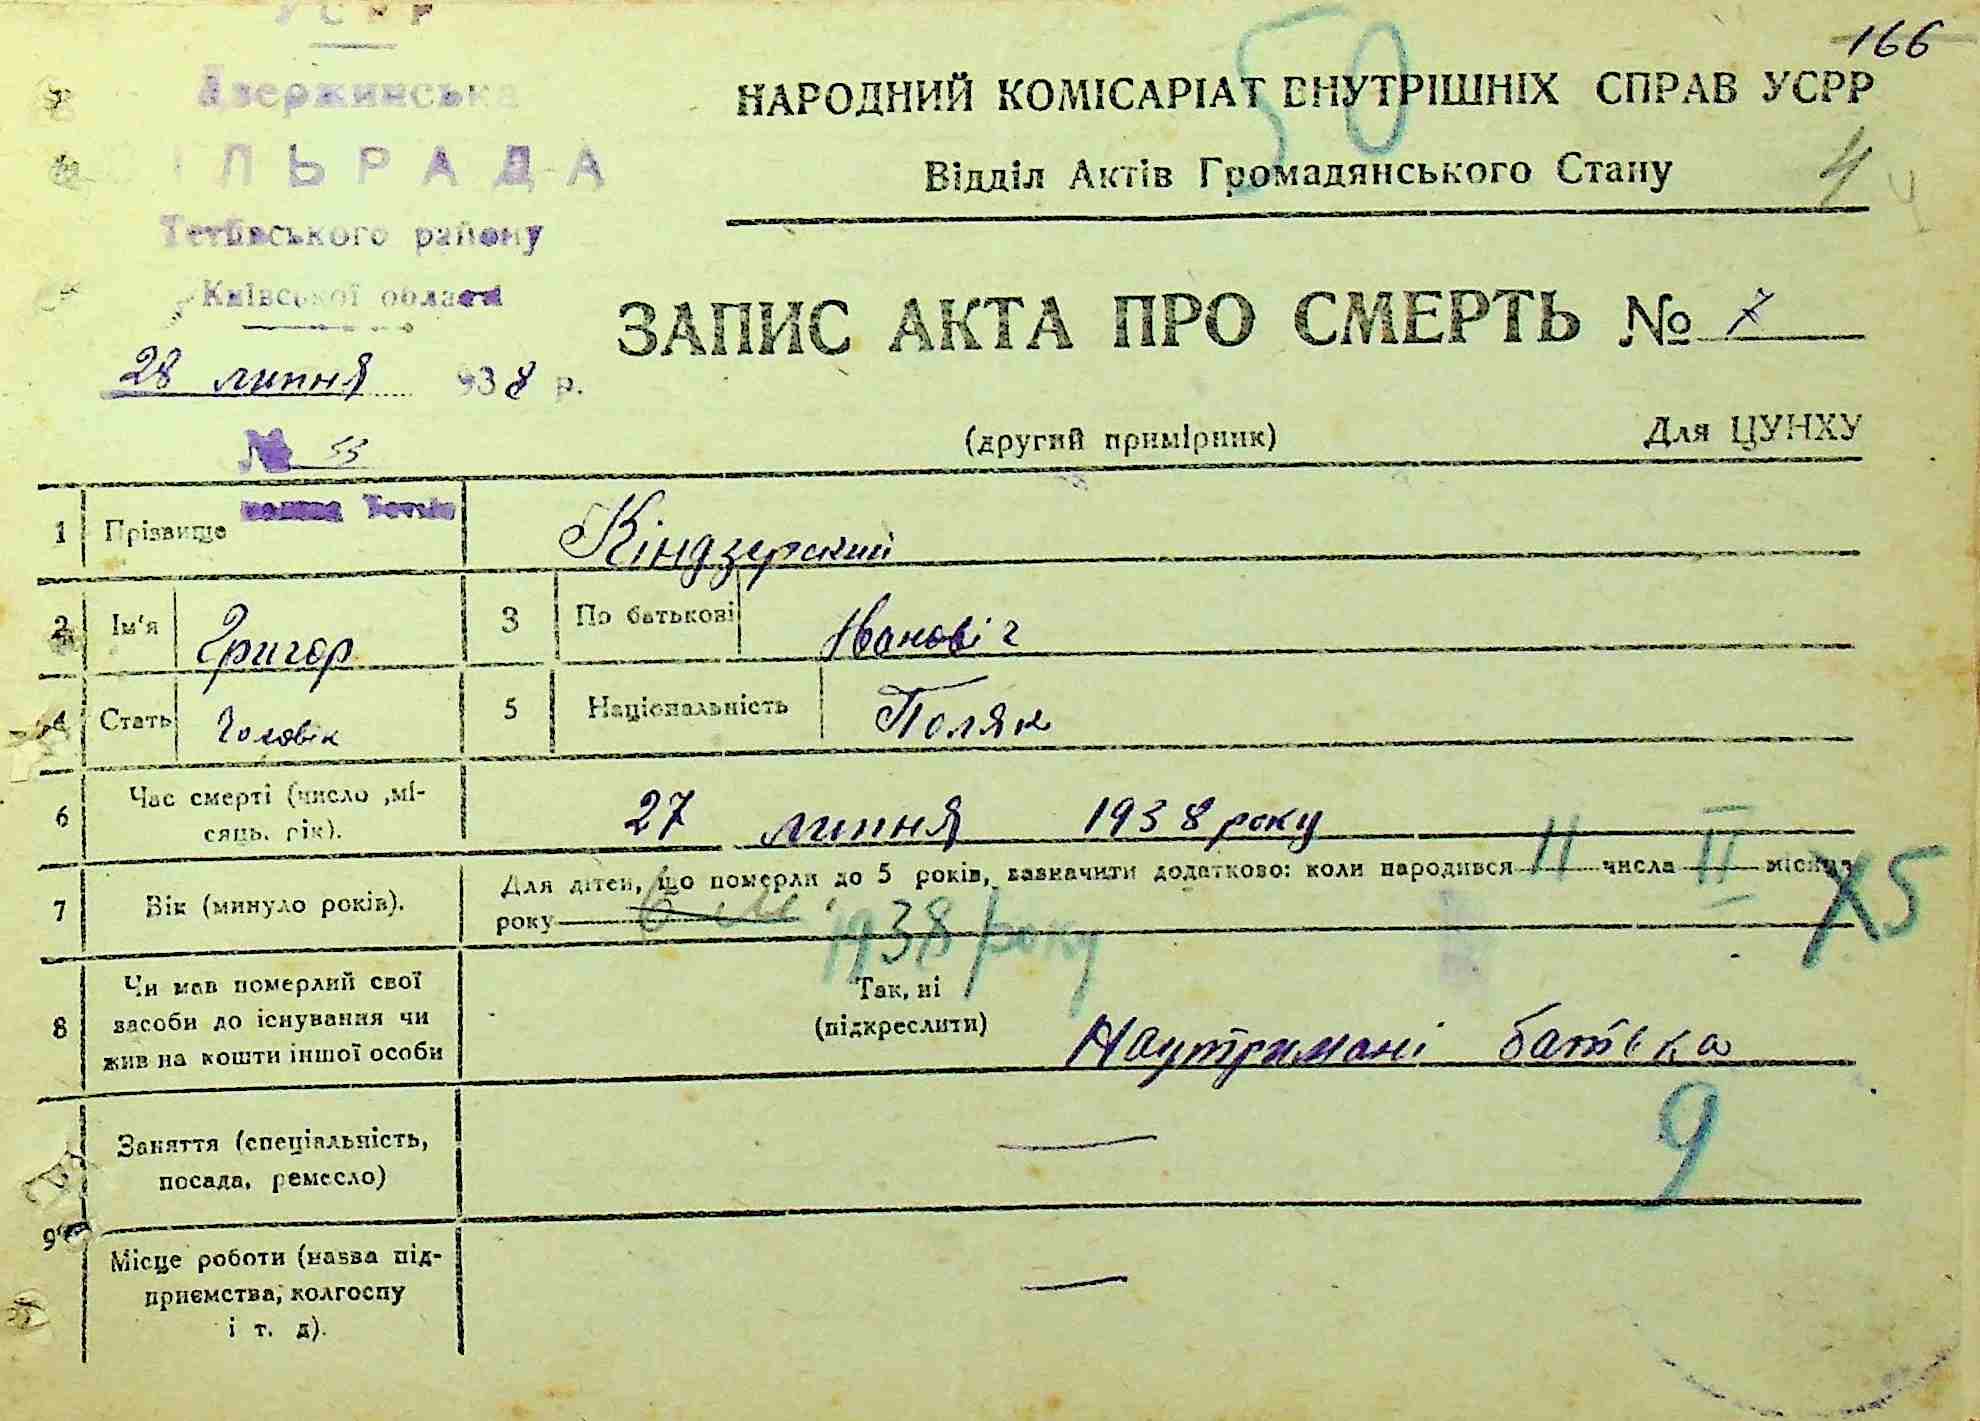 УСРР
166
Дзержинська
ІЛЬРАДА
Тетіївського району
Київської області
28 липня 938 р.
№ 53
50
НАРОДНИЙ КОМІСАРІАТ ВНУТРІШНІХ СПРАВ УСРР
Відділ Актів Громадянського Стану
4 4
ЗАПИС АКТА ПРО СМЕРТЬ № 7
(другий примірник) Для ЦУНХУ
1 Прізвище Кіндзерский
2 Ім'я Григор 3 По батькові Іванович
4 Стать Чоловік 5 Національність Поляк
6 Час смерті (число ,мі-
сяць. рік).
27 липня 1938 року
7 Вік (минуло років).
Для дітей, що померли до 5 років, зазначити додатково: коли народився 11 числа II місяця
року 6 м. 1938 року
X5
8 Чи мав померлий свої
засоби до існування чи
жив на кошти іншої особи
Так, ні
(підкреслити)
На утримані батька
9
9 Заняття (спеціальність,
посада, ремесло)
—
Місце роботи (назва під-
приємства, колгоспу
і т. д).
—